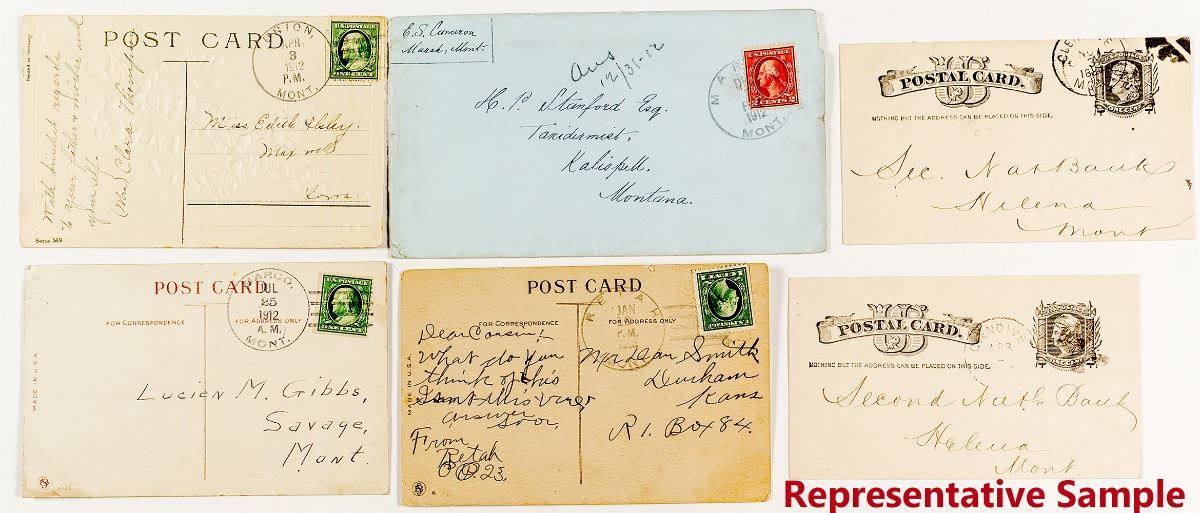 Printed in Germany
POST CARD
UNION,
APR
3
1912
P.M.
MONT.
U.S. POSTAGE
ONE CENT
With kindest regards
to your father & mother and
yourself.
Clara Thompson
Miss Edith
Iowa.
Serie 569
E.S. Cameron
Marsh, Mont.
Ans
12/31-12
MAR
1912
MONT.
U.S. POSTAGE
2 CENTS 2
H. P. Stanford Esq.
Taxidermist.
Kalispell.
Montana.
POSTAL CARD.
NOTHING BUT THE ADDRESS CAN BE PLACED ON THIS SIDE.
Sec. Nat Bank
Helena
Mont
POST CARD
FOR CORRESPONDENCE
FOR ADDRESS ONLY
MADE IN U.S.A.
MARCO,
JUL
25
1912
A.M.
MONT.
Lucien M. Gibbs,
Savage,
Mont.
POST CARD
FOR CORRESPONDENCE
FOR ADDRESS ONLY
MADE IN U.S.A.
JAN
P.M.
MONT.
Dear Cousin!
What do you
think of this
Isn't this
answer
soon.
From
Retah
Mr Dean Smith
Durham
Kans
R1. Box 84.
POSTAL CARD.
NOTHING BUT THE ADDRESS CAN BE PLACED ON THIS SIDE.
NDIVE
APR
Second Natl. Bank
Helena
Mont.
Representative Sample